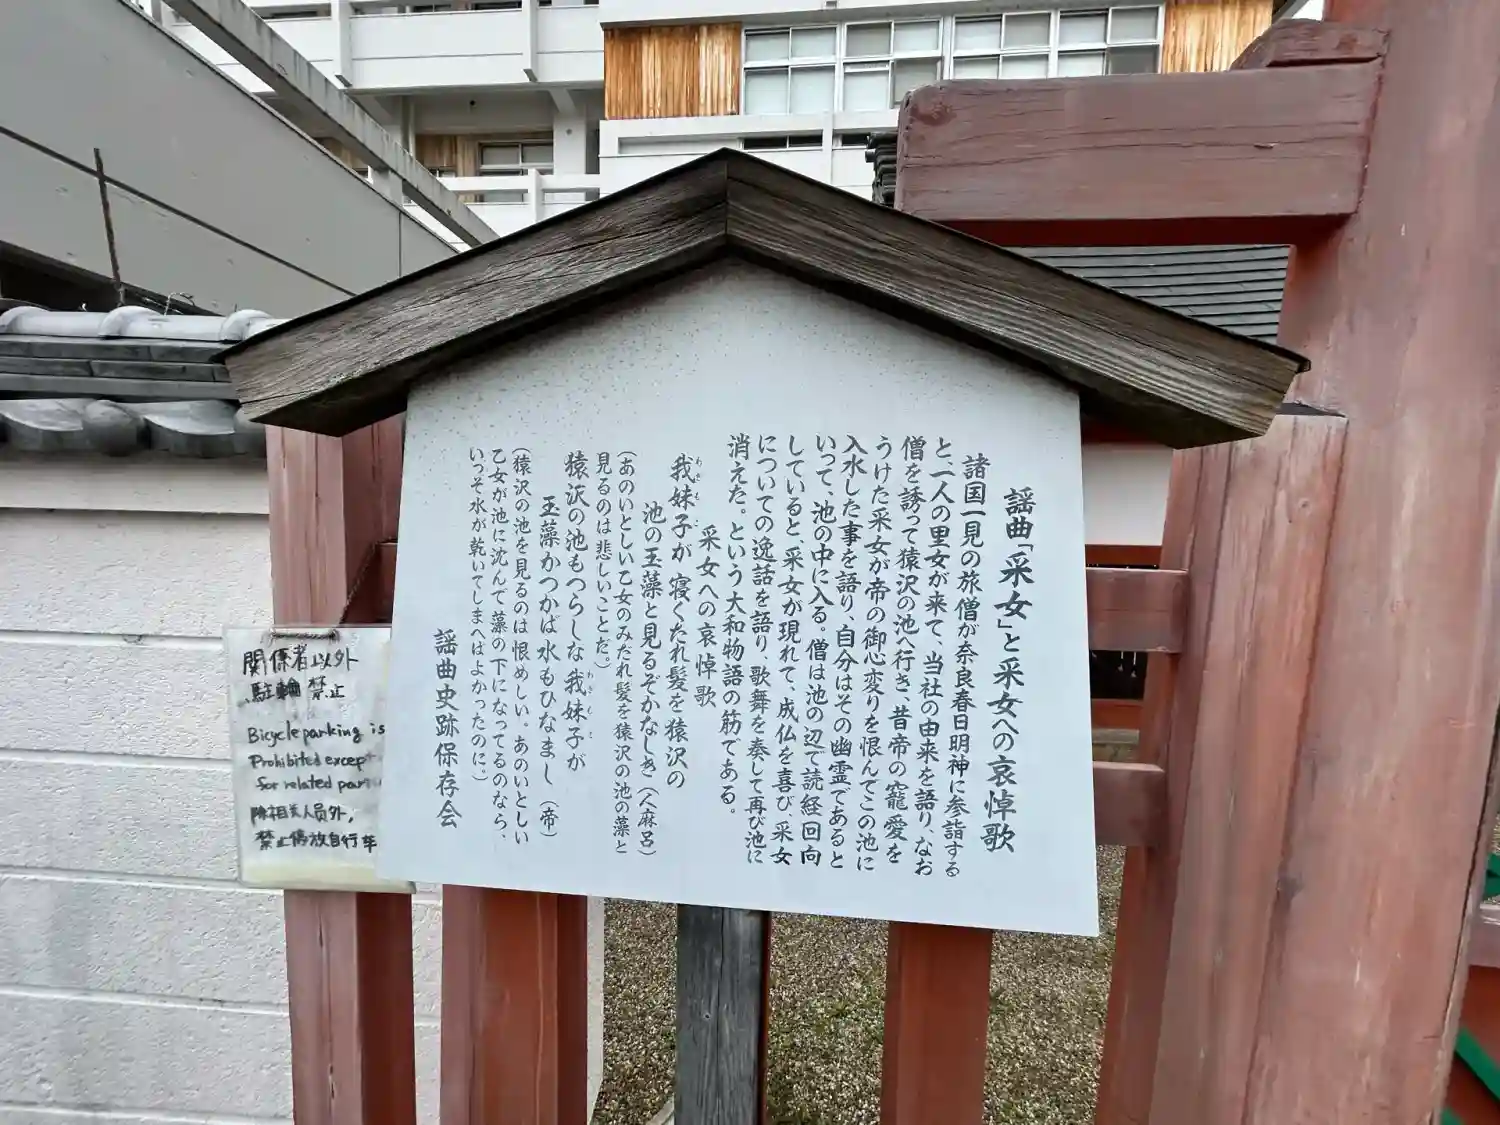 謡曲「采女」と采女への哀悼歌
諸国一見の旅僧が奈良春日明神に参詣する
と、一人の里女が来て、当社の由来を語り、なお
僧を誘って猿沢の池へ行き、昔帝の寵愛を
うけた采女が帝の御心変りを恨んでこの池に
入水した事を語り、自分はその幽霊であると
いって、池の中に入る。僧は池の辺で読経回向
していると、采女が現れて、成仏を喜び、采女
についての逸話を語り、歌舞を奏して再び池に
消えた。という大和物語の筋である。
采女への哀悼歌
我妹子が寝くたれ髪を猿沢の
池の玉藻と見るぞかなしき（人麻呂）
（あのいとしい乙女のみだれ髪を猿沢の池の藻と
見るのは悲しいことだ。）
猿沢の池もつらしな我妹子が
玉藻かつかば水もひなまし（帝）
（猿沢の池を見るのは恨めしい。あのいとしい
乙女が池に沈んで藻の下になってるのなら、
いっそ水が乾いてしまへばよかったのに。）
謡曲史跡保存会
関係者以外
駐輪禁止
Bicycle parking is
Prohibited except
for related
除相关人员外,
禁止停放自行车